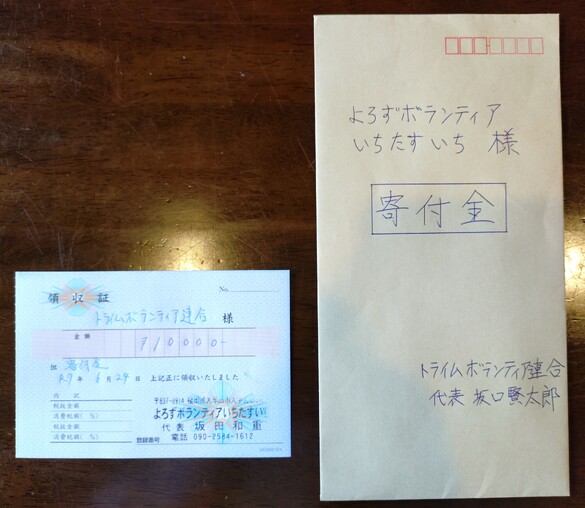 領収証
No.
トライムボランティア連合 様
金額
¥10000-
但
上記正に領収いたしました
内訳
税抜金額
消費税額( %)
税抜金額
消費税額( %)
登録番号
よろずボランティアいちたすいち
代表 坂田和重
電話 090-2584-1612
よろずボランティア
いちたすいち 様
寄付金
トライムボランティア連合
代表 坂口賢太郎